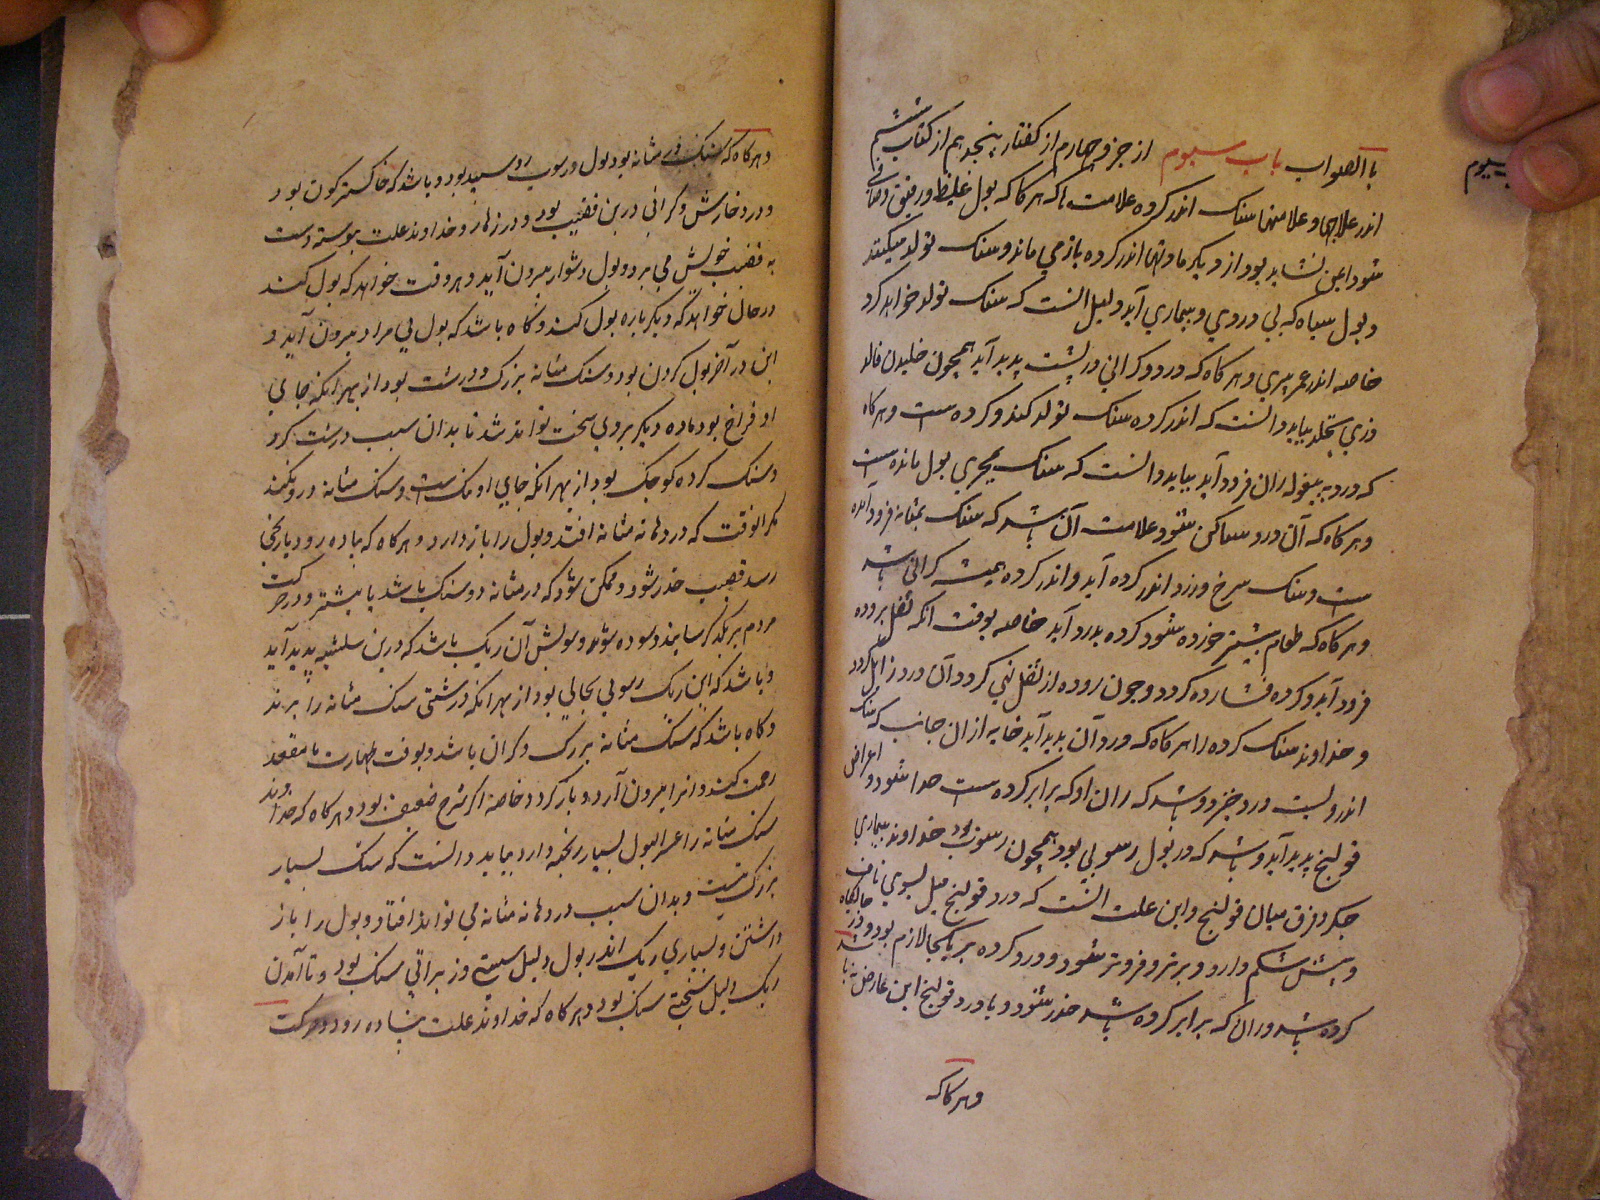 باالصواب باب سیوم از جزو چهارم از کفتار پنجدهم از کتاب ششم
باب سیوم
اندر علاجها و علامتهاء سنک اندر کرده علامت ها که هر کاکه بول غلیظ و رقیق و صافی
شود ایمن نشاید بود از دیکر ماده تها اندر کرده باز می ماند و سنک تولد میکند
و بول سیاه که بی دردی و بیماری آید دلیل انست که سنک تولد خواهد کرد
خاصه اندر عمر پیری و هر کاه که درد و کرانی در پشت پدید آید همچون خلیدن
بباید دانست که اندر کرده سنک تولد کند و کرده ست و هر کاه
که درد به بیغوله ران فرود آید بباید دانست که سنک بمجری بول مانده است
و هر کاه که آن درد ساکن شود علامت آن باشد که سنک بمثانه فرود آمده
ست و سنک سرخ و زرد اندر کرده آید و اندر کرده همیشه کرانی باشد
و هر کاه که طعام بیشتر خورده شود کرده بدرد آید خاصه بوقت آنکه ثقل بروده
فرود آید و کرده فشارده کردد و چون روده از ثقل تهی کردد آن درد زایل کردد
و خداوند سنک کرده را هر کاه که درد آن پدید آید خایه از ان جانب که سنک
اندرو ست درد خیزد و باشد که ران او که برابر کرده ست جدا شود و اعراض
قولنج پدید آید و باشد که در بول رسوبی بود همچون رسوب بول خداوند بیماری
جکر و فرق میان قولنج و این علت انست که درد قولنج میل بسوی ناف
و پیش شکم دارد و برتر و فروتر شود و درد کرده بر یکجا لازم بود و در جایکاه
کرده باشد و ران که برابر کرده باشد خدر شود و با درد قولنج این عارض نباشد
و هر کاکه
و هر کاه که سنک در مثانه بود بول و رسوب رو سپید بود و باشد که خاکسترکون بود
و درد و خارش و کرانی در بن قضیب بود و در زهار و خداوند علت پیوسته دست
به قضیب خویش می برد و بول دشوار بیرون آید و هر وقت خواهد که بول کند
در حال خواهد که دیکر باره بول کند و کاه باشد که بول بی مراد بیرون آید و
این در آخر بول کردن بود و سنک مثانه بزرک و درشت بود از بهر انکه جای
او فراخ بود ماده دیکر بروی سخت تواند شد تا بدان سبب درشت کردد
و سنک کرده کوچک بود از بهر انکه جای او تنک است و سنک مثانه درد نکند
مکر انوقت که در دهانه مثانه افتد و بول را باز دارد و هر کاه که پیاده رود یا رنجی
رسد قضیب خدر شود و ممکن شود که در مثانه دو سنک باشد یا بیشتر و در حرکت
مردم بر یکدکر سایند و سوده شوند و سونش آن ریک باشد که در بن شیشه پدید آید
و باشد که این ریک رسوبی بحالی بود از بهر انکه درشتی سنک مثانه را برند
و کاه باشد که سنک مثانه بزرک و کران باشد و بوقت طهارت با مقعد
زحمت کند و انرا بیرون آرد و باز کردد خاصه اکر شرج ضعیف بود و هر کاه که خداوند
سنک مثانه را عسر البول بسیار رنجه دارد بباید دانست که سنک بسیار
بزرک نیست و بدان سبب در دهانه مثانه می تواند افتاد و بول را باز
داشتن و بسیاری ریک اندر بول دلیل سستی و زیراتی سنک بود و ناآمدن
ریک دلیل سختی سنک بود و هر کاه که خداوند علت پیاده رود و حرکت